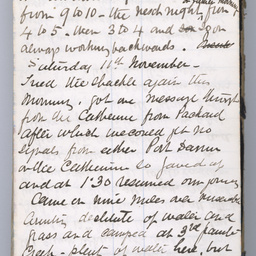 from 9 to 10 - the next night from
4 to 5 - then 3 to 4 and so on
always working backwards.
Saturday 11th November -
Tried the shackle again this
morning, got one message through
from the Catherine from Packard
after which we could get no
signals from either Port Darwin
or the Catherine so gave up
and at 1.30 resumed our journey
Came on nine miles over
country destitute of water and
grass and camped at 3rd
Creek - plenty of water here, but